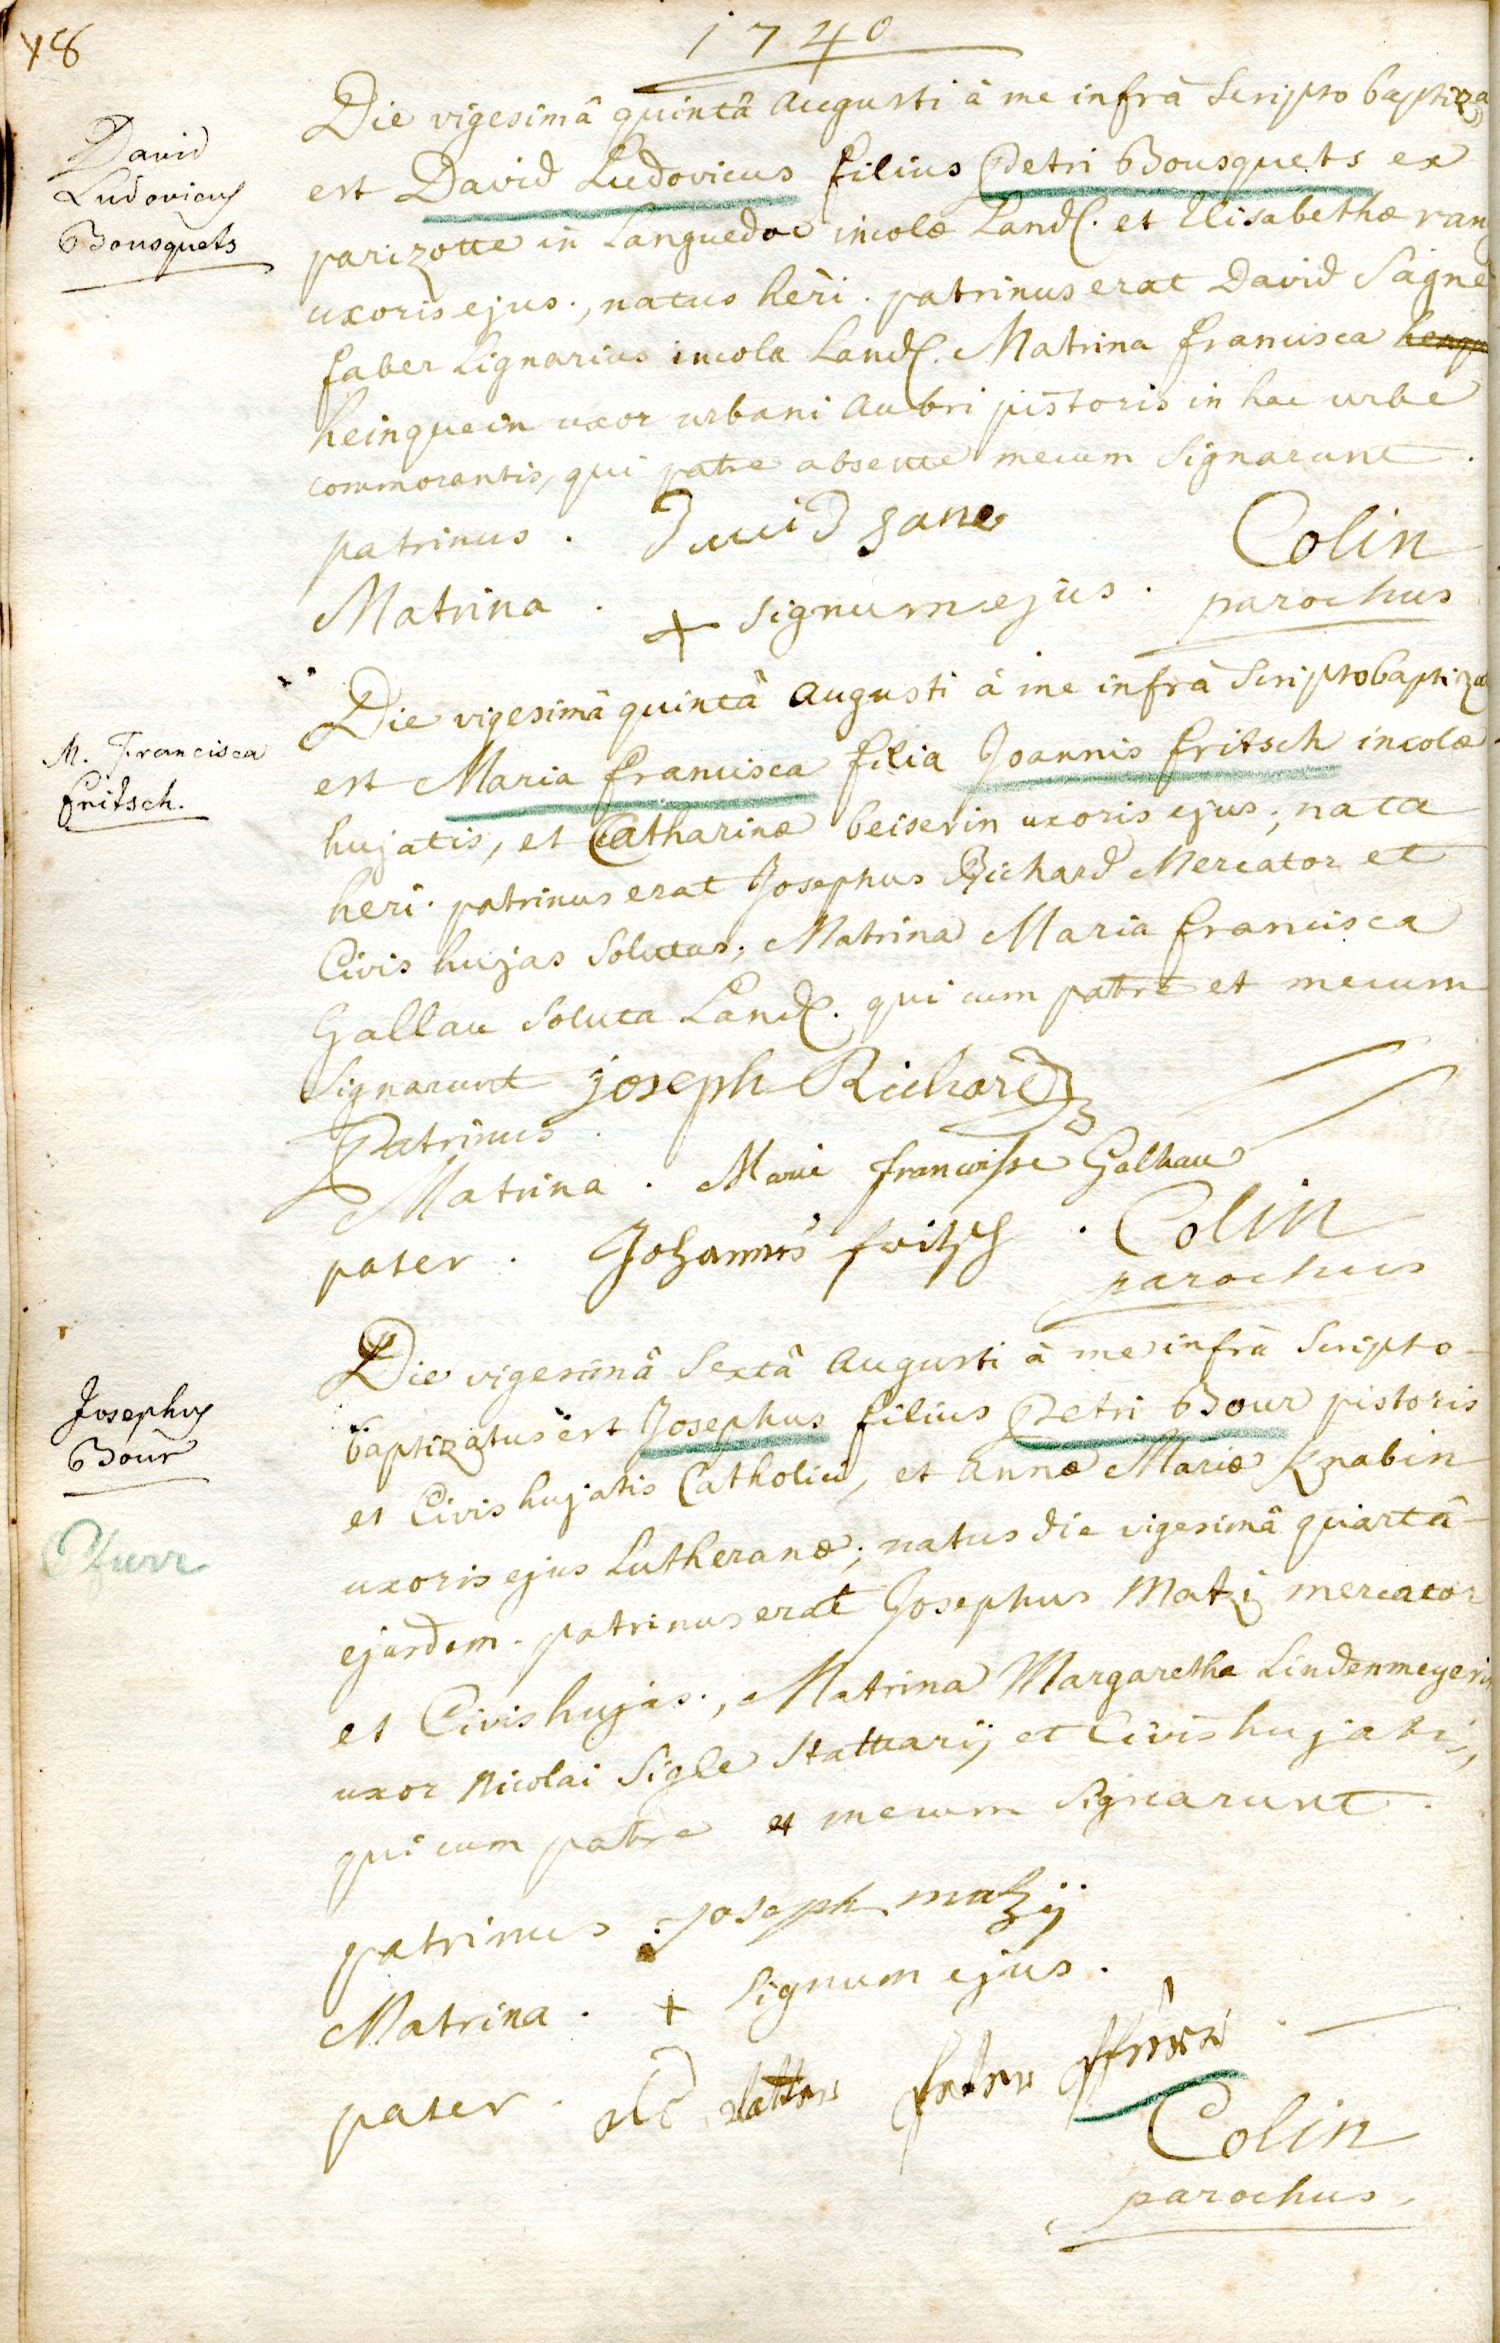 48
1740
David
Ludovicus
Bousquets
Die vigesimâ quintâ Augusti â me infrà Scripto baptiza
est David Ludovicus filius Petri Bousquets ex
parizotte in Languedoc incolæ Land. et Elisabethæ ran
uxoris ejus., natus heri. patrinus erat David Sagne
faber Lignarius incola Land. Matrina francisca
heinquein uxor urbani Aubri pistoris in hac urbe
commorantis, qui patre absente mecum Signarunt.
patrinus. David sane
Colin
Matrina. + Signum ejus. parochus
M. Francisca
Fritsch.
Die vigesimâ quintâ Augusti â me infrà Scripto baptizat
est Maria francisca filia Joannis fritsch incolæ
hujatis, et Catharinæ beiserin uxoris ejus; nata
heri. patrinus erat Josephus Richard Mercator et
Civis hujas Solutus; Matrina Maria francisca
Gallau Soluta Land. qui cum patre et mecum
Signarunt joseph Richard
Patrinus.
Matrina. Marie francoisse Galhau
pater. Johannes fritsch. Colin
parochus
Josephus
Bour
Pfurr
Die vigesimâ Sextâ Augusti â me infrà Scripto
baptizatus est Josephus filius Petri Bour pistoris
et Civis hujatis Catholici, et Annæ Mariæ Knabin
uxoris ejus Lutheranæ; natus die vigesimâ quartâ
ejusdem. patrinus erat Josephus Matzi mercator
et Civis hujas., Matrina Margaretha Lindenmeyerin
uxor Nicolai Sigle Statuarij et Civis hujatis,
qui cum patre et mecum Signarunt.
patrinus. joseph matzij
Matrina. + Signum ejus.
pater. als vatter peter
Colin
parochus.